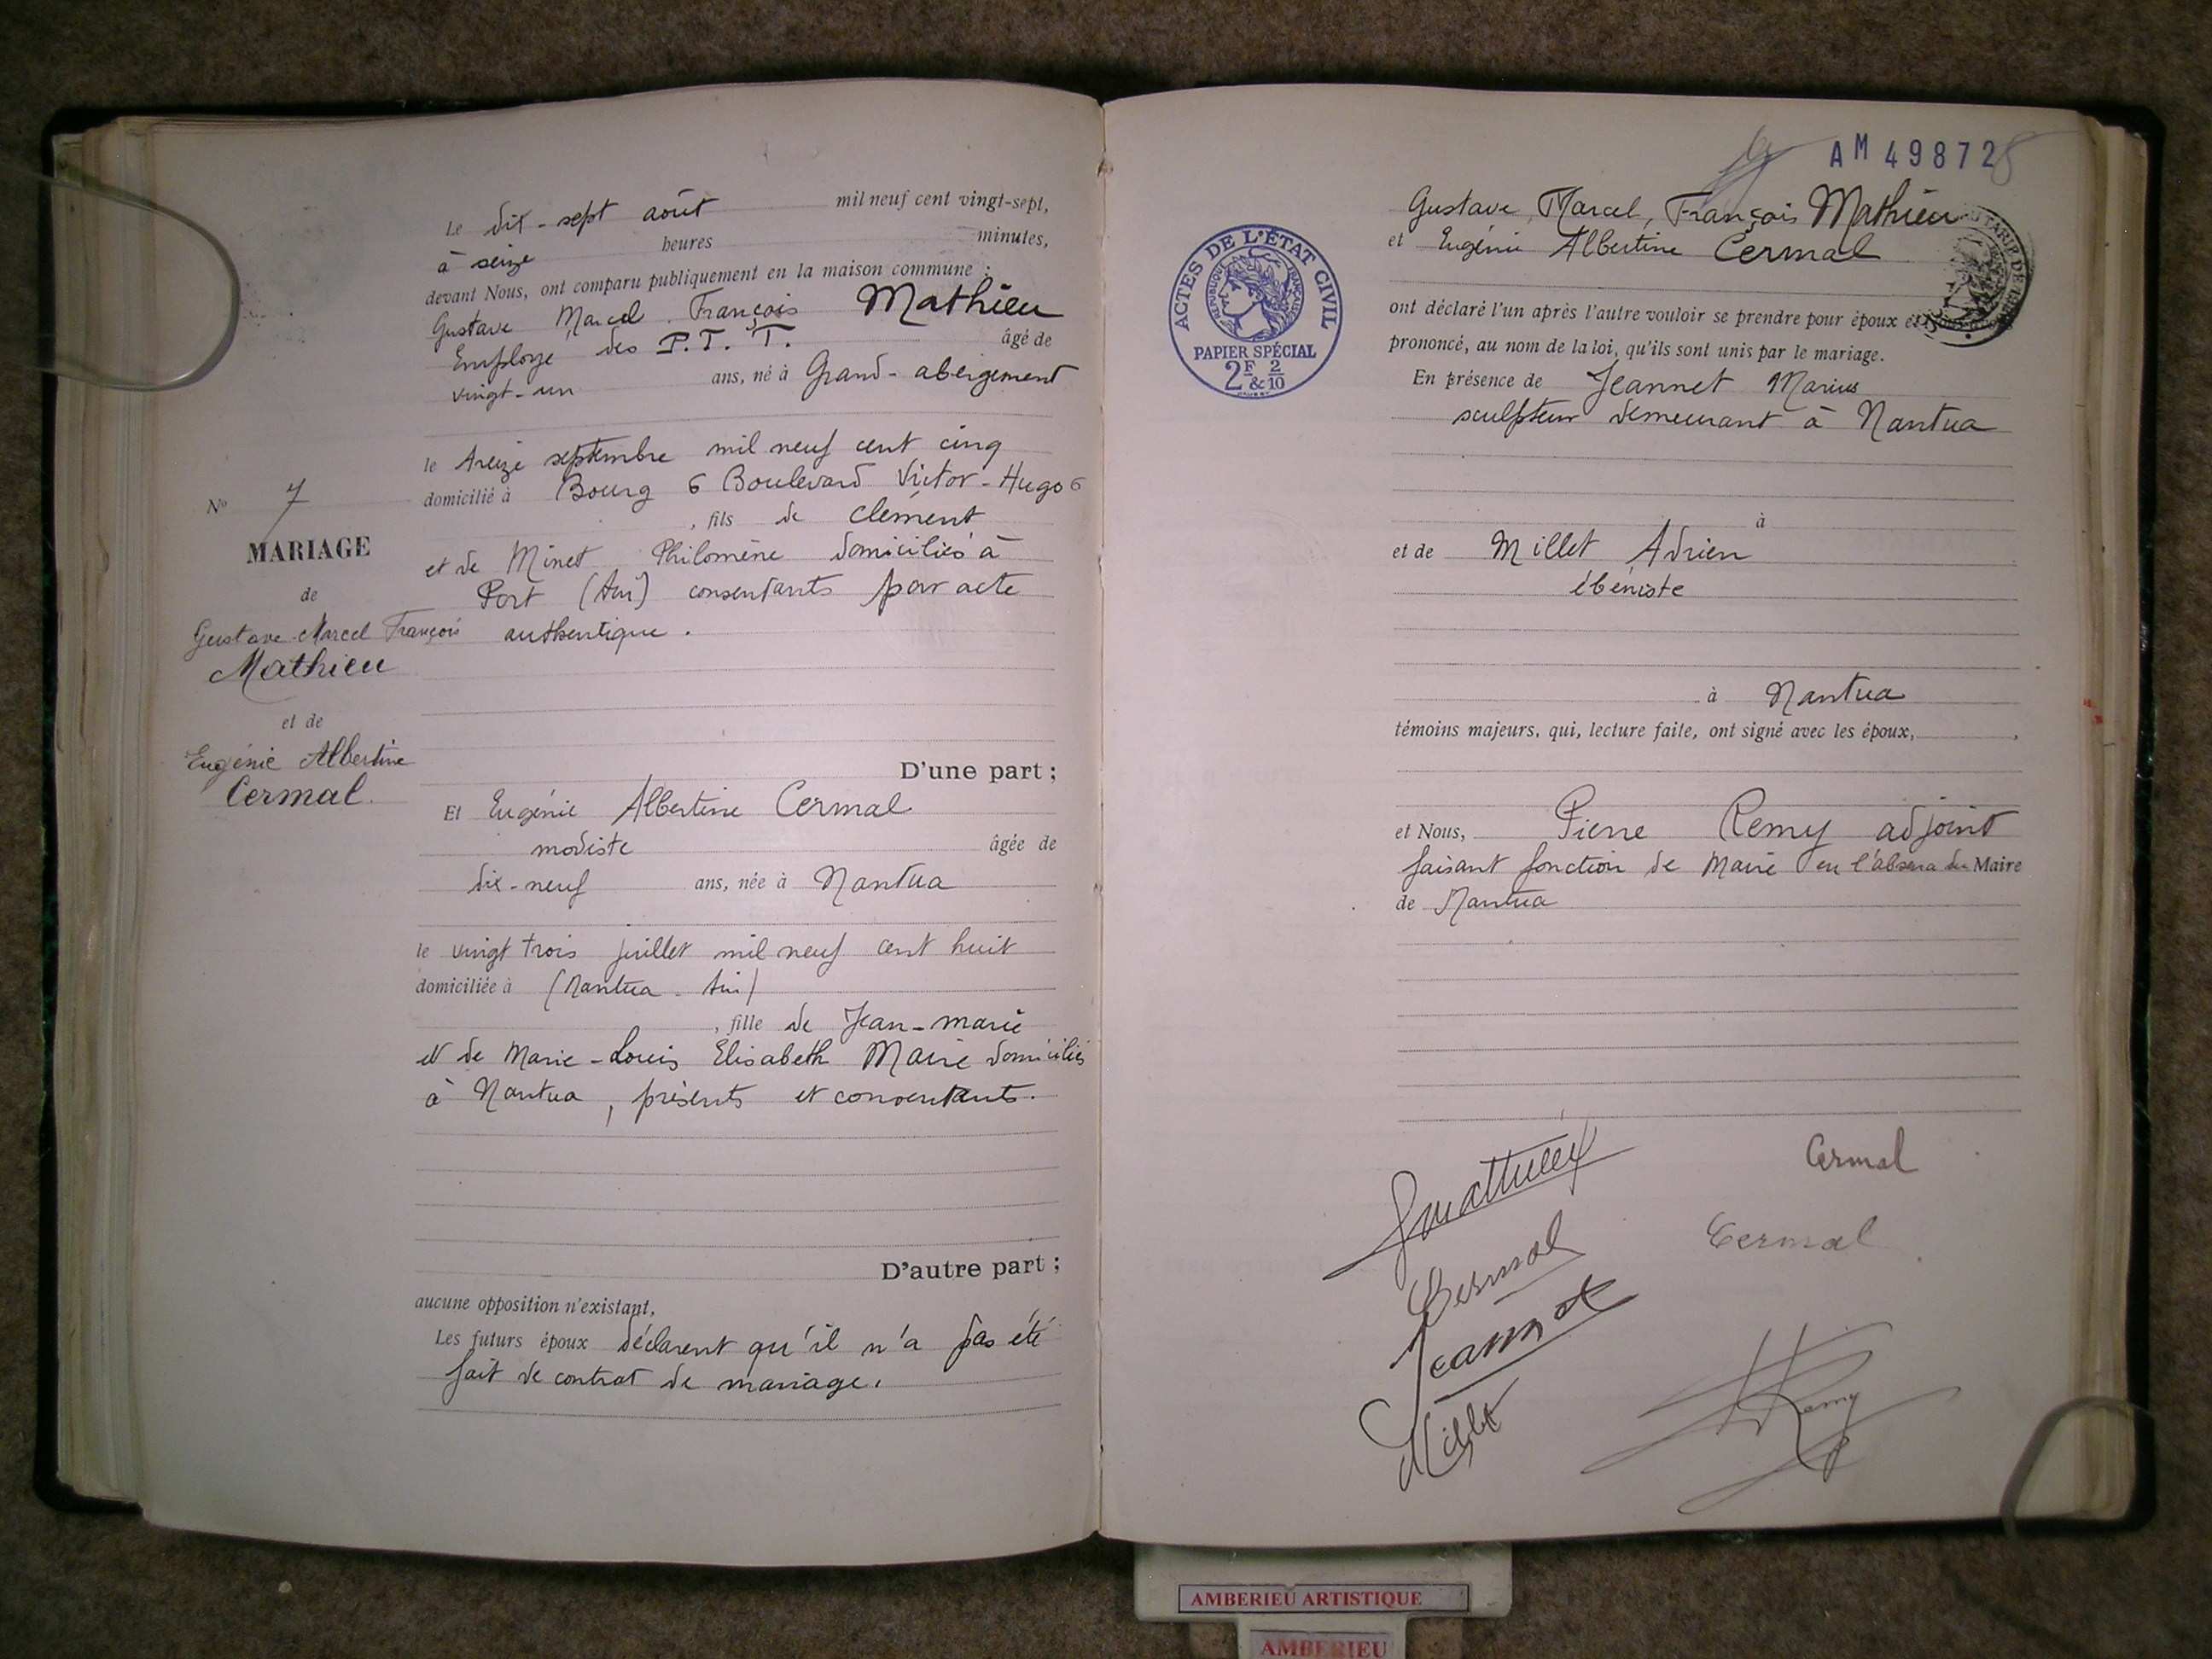 Le dix-sept août mil neuf cent vingt-sept,
à seize heures minutes,
devant Nous, ont comparu publiquement en la maison commune :
Gustave Marcel François Mathieu
Employé des P.T.T. âgé de
vingt-un ans, né à Grand-abergement
le treize septembre mil neuf cent cinq
domicilié à Bourg 6 Boulevard Victor-Hugo 6
, fils de clément
et de Minet Philomène domiciliés à
Port (Ain) consentants par acte
authentique.
No 7
MARIAGE
de
Gustave Marcel François
Mathieu
et de
Eugénie Albertine
Cermal.
D'une part ;
Et Eugénie Albertine Cermal
modiste âgée de
dix-neuf ans, née à Nantua
le vingt trois juillet mil neuf cent huit
domiciliée à (Nantua - Ain)
, fille de Jean-marie
et de Marie-Louis Elisabeth Marie domiciliés
à Nantua, présents et consentants.
D'autre part ;
aucune opposition n'existant,
Les futurs époux déclarent qu'il n'a pas été
fait de contrat de mariage.
AM 498728
Gustave, Marcel, François Mathieu
et Eugénie Albertine Cermal
ACTES DE L'ÉTAT CIVIL
RÉPUBLIQUE FRANÇAISE
PAPIER SPÉCIAL
2F & 2/10
ont déclaré l'un après l'autre vouloir se prendre pour époux et
prononcé, au nom de la loi, qu'ils sont unis par le mariage.
En présence de Jeannet Marius
sculpteur demeurant à Nantua
à
et de Millet Adrien
ébéniste
à Nantua
témoins majeurs, qui, lecture faite, ont signé avec les époux, ,
et Nous, Pierre Remy adjoint
faisant fonction de Maire en l'absence du Maire
de Nantua
Cermal
Cermal
Cermal
Jeannet
Millet
Remy
AMBERIEU ARTISTIQUE
AMBERIEU